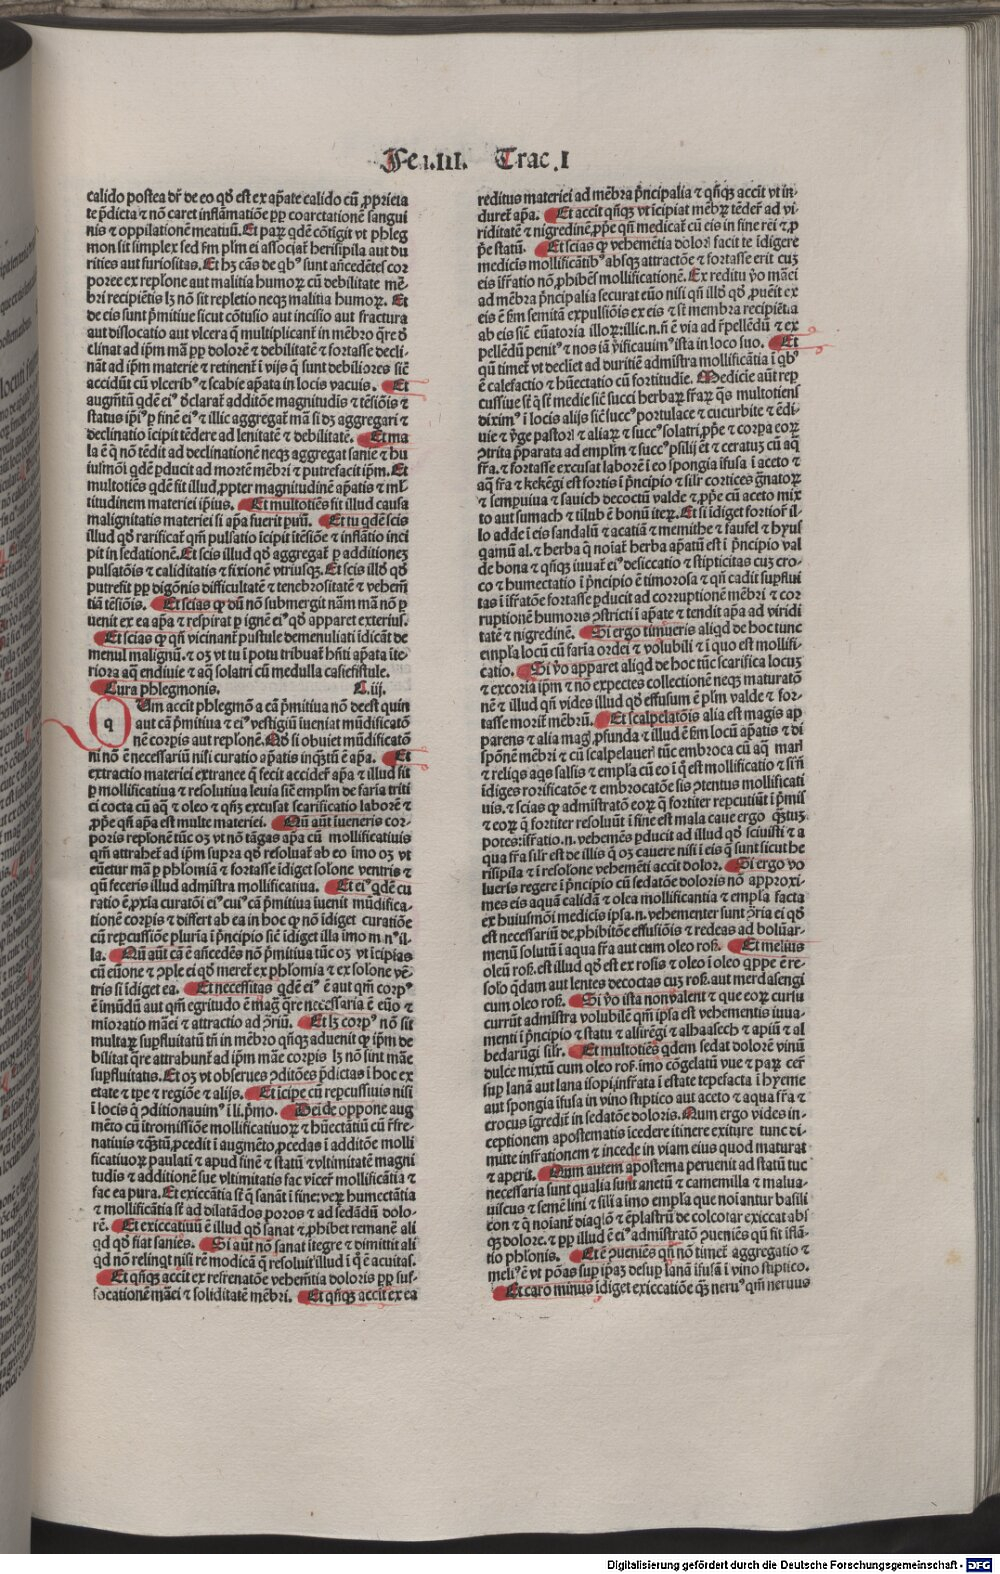 Fen.III. Trac.I
calido postea dr̄ de eo qd̄ est ex ap̄ate calido cū ꝓprieta
te p̄dicta ⁊ nō caret inflāmatiōe ꝓp̄ coaretationē sangui
nis ⁊ oppilationē meatiuū. Et paꝝ qdē cōtigit vt phleg
mon sit simplex sed ẜm plm̄ ei associat̄ herisipila aut du
rities aut furiositas. Et hꝫ cās de qb⁹ sunt an̄cedētes cor
poree ex replōne aut malitia humoꝝ cū debilitate mē-
bri recipiētis lꝫ nō sit repletio neqꝫ malitia humoꝝ. Et
de eis sunt p̄mitiue sicut cōtusio aut incisio aut fractura
aut dislocatio aut vlcera q̄ multiplicant̄ in mēbro q̄re
clinat ad ip̄m mā ꝓp̄ dolorē ⁊ debilitatē ⁊ fortasse decli-
nāt ad ip̄m materie ⁊ retinent̄ ī vijs q̄ sunt debiliores sic̄
accidūt cū vlcerib⁹ ⁊ scabie ap̄ata in locis vacuis. Et
augm̄tū qdē ei⁹ declarat̄ additōe magnitudis ⁊ tēsiōis ⁊
status ip̄i⁹ p̄ finē ei⁹ ⁊ illic aggregat̄ mā si dꝫ aggregari ⁊
declinatio īcipit tēdere ad lenitatē ⁊ debilitatē. Et ma
la ē q̄ nō tēdit ad declinationē neqꝫ aggregat saniē ⁊ hu
iusmōi qdē ꝑducit ad mortē mēbri ⁊ putrefacit ip̄m. Et
multotiēs qdē fit illud ꝓpter magnitudinē ap̄atis ⁊ ml̄
titudinem materiei ip̄ius. Et multotiēs fit illud causa
malignitatis materiei si ap̄a fuerit puū. Et tu qdē scis
illud qd̄ rarificat̄ qm̄ pulsatio īcipit itēsiōe ⁊ inflatio inci
pit in sedationē. Et scis illud qd̄ aggregat̄ p̄ additionez
pulsatōis ⁊ caliditatis ⁊ fixionē vtriusqꝫ. Et scis illd̄ qd̄
putrefit ꝓp̄ digōnis difficultatē ⁊ tenebrositatē ⁊ vehem̄
tiā tēsiōis. Et scias qꝙ dū nō submergit nām mā nō ꝑ
uenit ex ea ap̄a ⁊ respirat p̄ ignē ei⁹ qd̄ apparet exterius.
Et scias qꝙ qn̄ vicinant̄ pustule demenuliati īdicāt de
menul malignū. ⁊ oꝫ vt tu ī potu tribuat̄ hn̄ti ap̄ata īte
riora aq̄ endiuie ⁊ aq̄ solatri cū medulla casiefistule.
Cura phlegmonis. C. iij.
q
Um accit phlegmō a cā p̄mitiua nō deest quin
aut cā p̄mitiua ⁊ ei⁹ vestigiū iueniat mūdificatō
nē corpis aut replōnē. Qd̄ si obuiet mūdificatō
ni nō ē necessariū nisi curatio ap̄atis inqꝫtū ē apa. Et
extractio materiei extrance q̄ fecit accider̄ ap̄a ⁊ illud fit
p̄ mollificatiua ⁊ resolutiua leuia sic̄ emplm̄ de faria triti
ci cocta cū aq̄ ⁊ oleo ⁊ qn̄qꝫ excusat scarificatio laborē ⁊
ꝓp̄e qn̄ apa est multe materiei. Nū aūt iueneris cor-
poris replōne tūc oꝫ vt nō tāgas apa cū mollificatiuis
qm̄ attrahet̄ ad ip̄m supra qd̄ resoluat̄ ab eo īmo oꝫ vt
euētur mā p̄ phlomiā ⁊ fortasse īdiget solone ventris ⁊
qn̄ feceris illud admīstra mollificatiua. Et ei⁹ qdē cu
ratio ē ꝓxīa curatōi ei⁹ cui⁹ cā p̄mitiua iuenit mūdifica-
tionē corpis ⁊ differt ab ea in hoc qꝙ nō īdiget curatiōe
cū reꝑcussiōe pluria ī p̄ncipio sic̄ īdiget illa īmo m.n⁹ il-
la. Nū aūt cā ē an̄cedēs nō p̄mitiua tūc oꝫ vt īcipias
cū euōne ⁊ ꝯple ei qd̄ meret̄ ex phlomia ⁊ ex solone vē-
tris si īdiget ea. Et necessitas qdē ei⁹ ē aut qm̄ corp⁹
ē īmūdū aut qm̄ egritudo ē mag q̄re necessaria ē euō ⁊
mioratio māei ⁊ attractio ad ꝯriū. Et lꝫ corp⁹ nō sit
multaꝝ supfluitatū tn̄ in mēbro qn̄qꝫ aduenit qꝙ ip̄m de
bilitat q̄re attrahunt̄ ad ip̄m māe corpis lꝫ nō sint māe
supfluitatis. Et oꝫ vt obserues ꝯditōes p̄dictas ī hoc ex
etate ⁊ tp̄e ⁊ regiōe ⁊ alijs. Et īcipe cū reꝑcussiuis nisi
ī locis q̄ ꝯditionauim⁹ ī li. p̄mo. Deide oppone aug
mēto cū itromissiōe mollificatiuoꝝ ⁊ hūectātiū cū rīfre-
natiuis ⁊ qꝫtū ꝓcedit ī augmēto ꝓcedas ī additōe molli
ficatiuoꝝ paulatī ⁊ apud finē ⁊ statū ⁊ vltimitatē magni
tudis ⁊ additionē sue vltimitatis fac vicer̄ mollificatīa ⁊
fac ea pura. Et exiccātīa st̄ q̄ sanāt ī fine: veꝝ humectātīa
⁊ mollificātīa st̄ ad dilatādos poros ⁊ ad sedādū dolo-
rē. Et exiccatiuū ē illud qd̄ sanat ⁊ ꝓhibet remanē ali
qd qd̄ fiat sanies. Si aūt nō sanat itegre ⁊ dimittit ali
qd nō relinqt nisi rē modicā q̄ resoluit illud ī q̄ ē acuitas.
Et qn̄qꝫ accit ex refrenatōe vehem̄tia doloris ꝓp̄ suf-
focationē māei ⁊ soliditatē mēbri. Et qn̄qꝫ accit ex ea
reditus materiei ad mēbra p̄ncipalia ⁊ qn̄qꝫ accit vt in-
duret̄ apa. Et accit qn̄qꝫ vt īcipiat mēbꝝ tēder̄ ad vi-
riditatē ⁊ nigredinē ꝓp̄e qn̄ medicat̄ cū eis in fine rei ⁊ ꝓ
p̄e statū. Et scias qꝙ vehemētia dolor̄ facit te īdigere
medicīs mollificātib⁹ absqꝫ attractōe ⁊ fortasse erit cuꝫ
eis ifratio nō ꝓhibēs mollificationē. Ex reditu v̄o māei
ad mēbra p̄ncipalia securat euō nisi qn̄ illd̄ qd̄ ꝓuēit ex
eis ē ẜm semitā expulsiōis ex eis ⁊ st̄ membra recipiētia
ab eis sic̄ eūatoria illoꝝ: illic.n.n̄ ē via ad r̄pellēdū ⁊ ex
pellēdū penit⁹ ⁊ nos iā v̄ificauim⁹ ista in loco suo. Et
qn̄ timet̄ vt decliet ad duritiē admīstra mollificātīa ī qb⁹
ē calefactio ⁊ hūectatio cū fortitudīe. Medicie aūt rep
cussiue st̄ q̄ st̄ medie sic̄ succi herbaꝝ fr̄aꝝ qs multotiens
dixim⁹ ī locis alijs sic̄ succ⁹ portulace ⁊ cucurbite ⁊ ēdi-
uie ⁊ v̄ge pastor̄ ⁊ aliaꝝ ⁊ succ⁹ solatri ꝓp̄e ⁊ corpa eoꝝ
ꝯtrita p̄parata ad emplm̄ ⁊ succ⁹ psilij ēt ⁊ ceratuꝫ cū aq̄
fr̄a. ⁊ fortasse excusat laborē ī eo spongia īfusa ī aceto ⁊
aq̄ fr̄a ⁊ kekēgi est fortis ī p̄ncipio ⁊ silr̄ cortices ḡnatoꝝ
⁊ sempuiua ⁊ sauich decoctū valde ⁊ ꝓp̄e cū aceto mix
to aut sumach ⁊ tilub ē bonū iteꝝ. Et si īdiget fortior̄ il-
lo adde ī eis sandalū ⁊ acatiā ⁊ memithe ⁊ faufel ⁊ hyus
qamū al. ⁊ herba q̄ noiat̄ herba apatū est ī p̄ncipio val
de bona ⁊ qn̄qꝫ iuuat̄ ei⁹ desiccatio ⁊ stipticitas cuꝫ cro-
co ⁊ humectatio ī p̄ncipio ē timorosa ⁊ qn̄ cadit supflui
tas ī ifratōe fortasse ꝑducit ad corruptionē mēbri ⁊ cor
ruptionē humoris ꝯstricti ī apate ⁊ tendit apa ad viridi
tatē ⁊ nigredinē. Si ergo timueris aliqd de hoc tunc
empla locū cū faria ordei ⁊ volubili ⁊ ī quo est mollifi-
catio. Si v̄o apparet aliqd de hoc tūc scarifica locuꝫ
⁊ excoria ip̄m ⁊ nō expectes collectionē neqꝫ maturatō
nē ⁊ illud qn̄ vides illud qd̄ effusum ē plm̄ valde ⁊ for-
tasse morit̄ mēbrū. Et scalpelatōis alia est magis ap
parens ⁊ alia mag ꝓfunda ⁊ illud ē ẜm locū apatis ⁊ di
sponē mēbri ⁊ cū scalpelauer̄ tūc embroca cū aq̄ mar̄
⁊ reliqs aqs salsis ⁊ empla cū eo ī q̄ est mollificatio ⁊ si n̄
īdiges rorificatōe ⁊ embrocatōe sis ꝯtentus mollificati
uis. ⁊ scias qꝙ admīstratō eoꝝ q̄ fortiter repcutiūt ī p̄mis
⁊ eoꝝ q̄ fortiter resoluūt ī fine est mala caue ergo qꝫtuꝫ
potes: ifratio.n. vehemēs ꝑducit ad illud qd̄ sciuisti ⁊ a
qua fr̄a silr̄ est de illis q̄ oꝫ cauere nisi ī eis q̄ sunt sicut he
risipila ⁊ ī resolone vehemēti accit dolor. Si ergo vo
lueris regere ī p̄ncipio cū sedatōe doloris nō approxi-
mes eis aquā calidā ⁊ olea mollificantia ⁊ empla facta
ex huiusmōi medicis ipsa.n. vehementer sunt ꝯria ei qd̄
est necessariū de ꝓhibitōe effusiōis ⁊ redeas ad bolūar-
menū solutū ī aqua fr̄a aut cum oleo roẜ. Et melius
oleū roẜ. est illud qd̄ est ex rosis ⁊ oleo ī oleo qppe ē re-
solo qdam aut lentes decoctas cuꝫ roẜ. aut merdasengi
cum oleo roẜ. Si v̄o ista non valent ⁊ que eoꝝ cursu
currūt admīstra volubilē qm̄ ipsa est vehementis iuua-
menti ī p̄ncipio ⁊ statu ⁊ alsirēgi ⁊ alhaasech ⁊ apiū ⁊ al
bedarūgi silr̄. Et multotiēs qdem sedat dolorē vinū
dulce mixtū cum oleo roẜ. īmo cōgelatū vue ⁊ paꝝ cer̄
sup lanā aut lana isopi. infrata ī estate tepefacta ī hyeme
aut spongia īfusa in vino stiptico aut aceto ⁊ aqua fr̄a ⁊
crocus īgredit̄ in sedatōe doloris. Num ergo vides in-
ceptionem apostematis īcedere itinere exiture tunc di-
mitte infrationem ⁊ incede in viam eius quod maturat
⁊ aperit. Num autem apostema peruenit ad statū tuc
necessaria sunt qualia sunt anctū ⁊ camemilla ⁊ malua-
uiscus ⁊ semē lini ⁊ silia īmo empla que noiantur basili
con ⁊ q̄ noiant̄ diaqlō ⁊ ēplastrū de colcotar exiccat abs
qꝫ dolore. ⁊ ꝓp̄ illud ē ei⁹ admīstratō ꝯueniēs qn̄ fit iflā-
tio phlonis. Et ē ꝯueniēs qn̄ nō timet̄ aggregatio ⁊
meli⁹ ē vt pōas sup ipaꝫ desup lanā īfusā ī vino stiptico.
Et caro minus īdiget exiccatiōe qꝫ neru⁹ qm̄ neruus
Digitalisierung gefördert durch die Deutsche Forschungsgemeinschaft - DFG